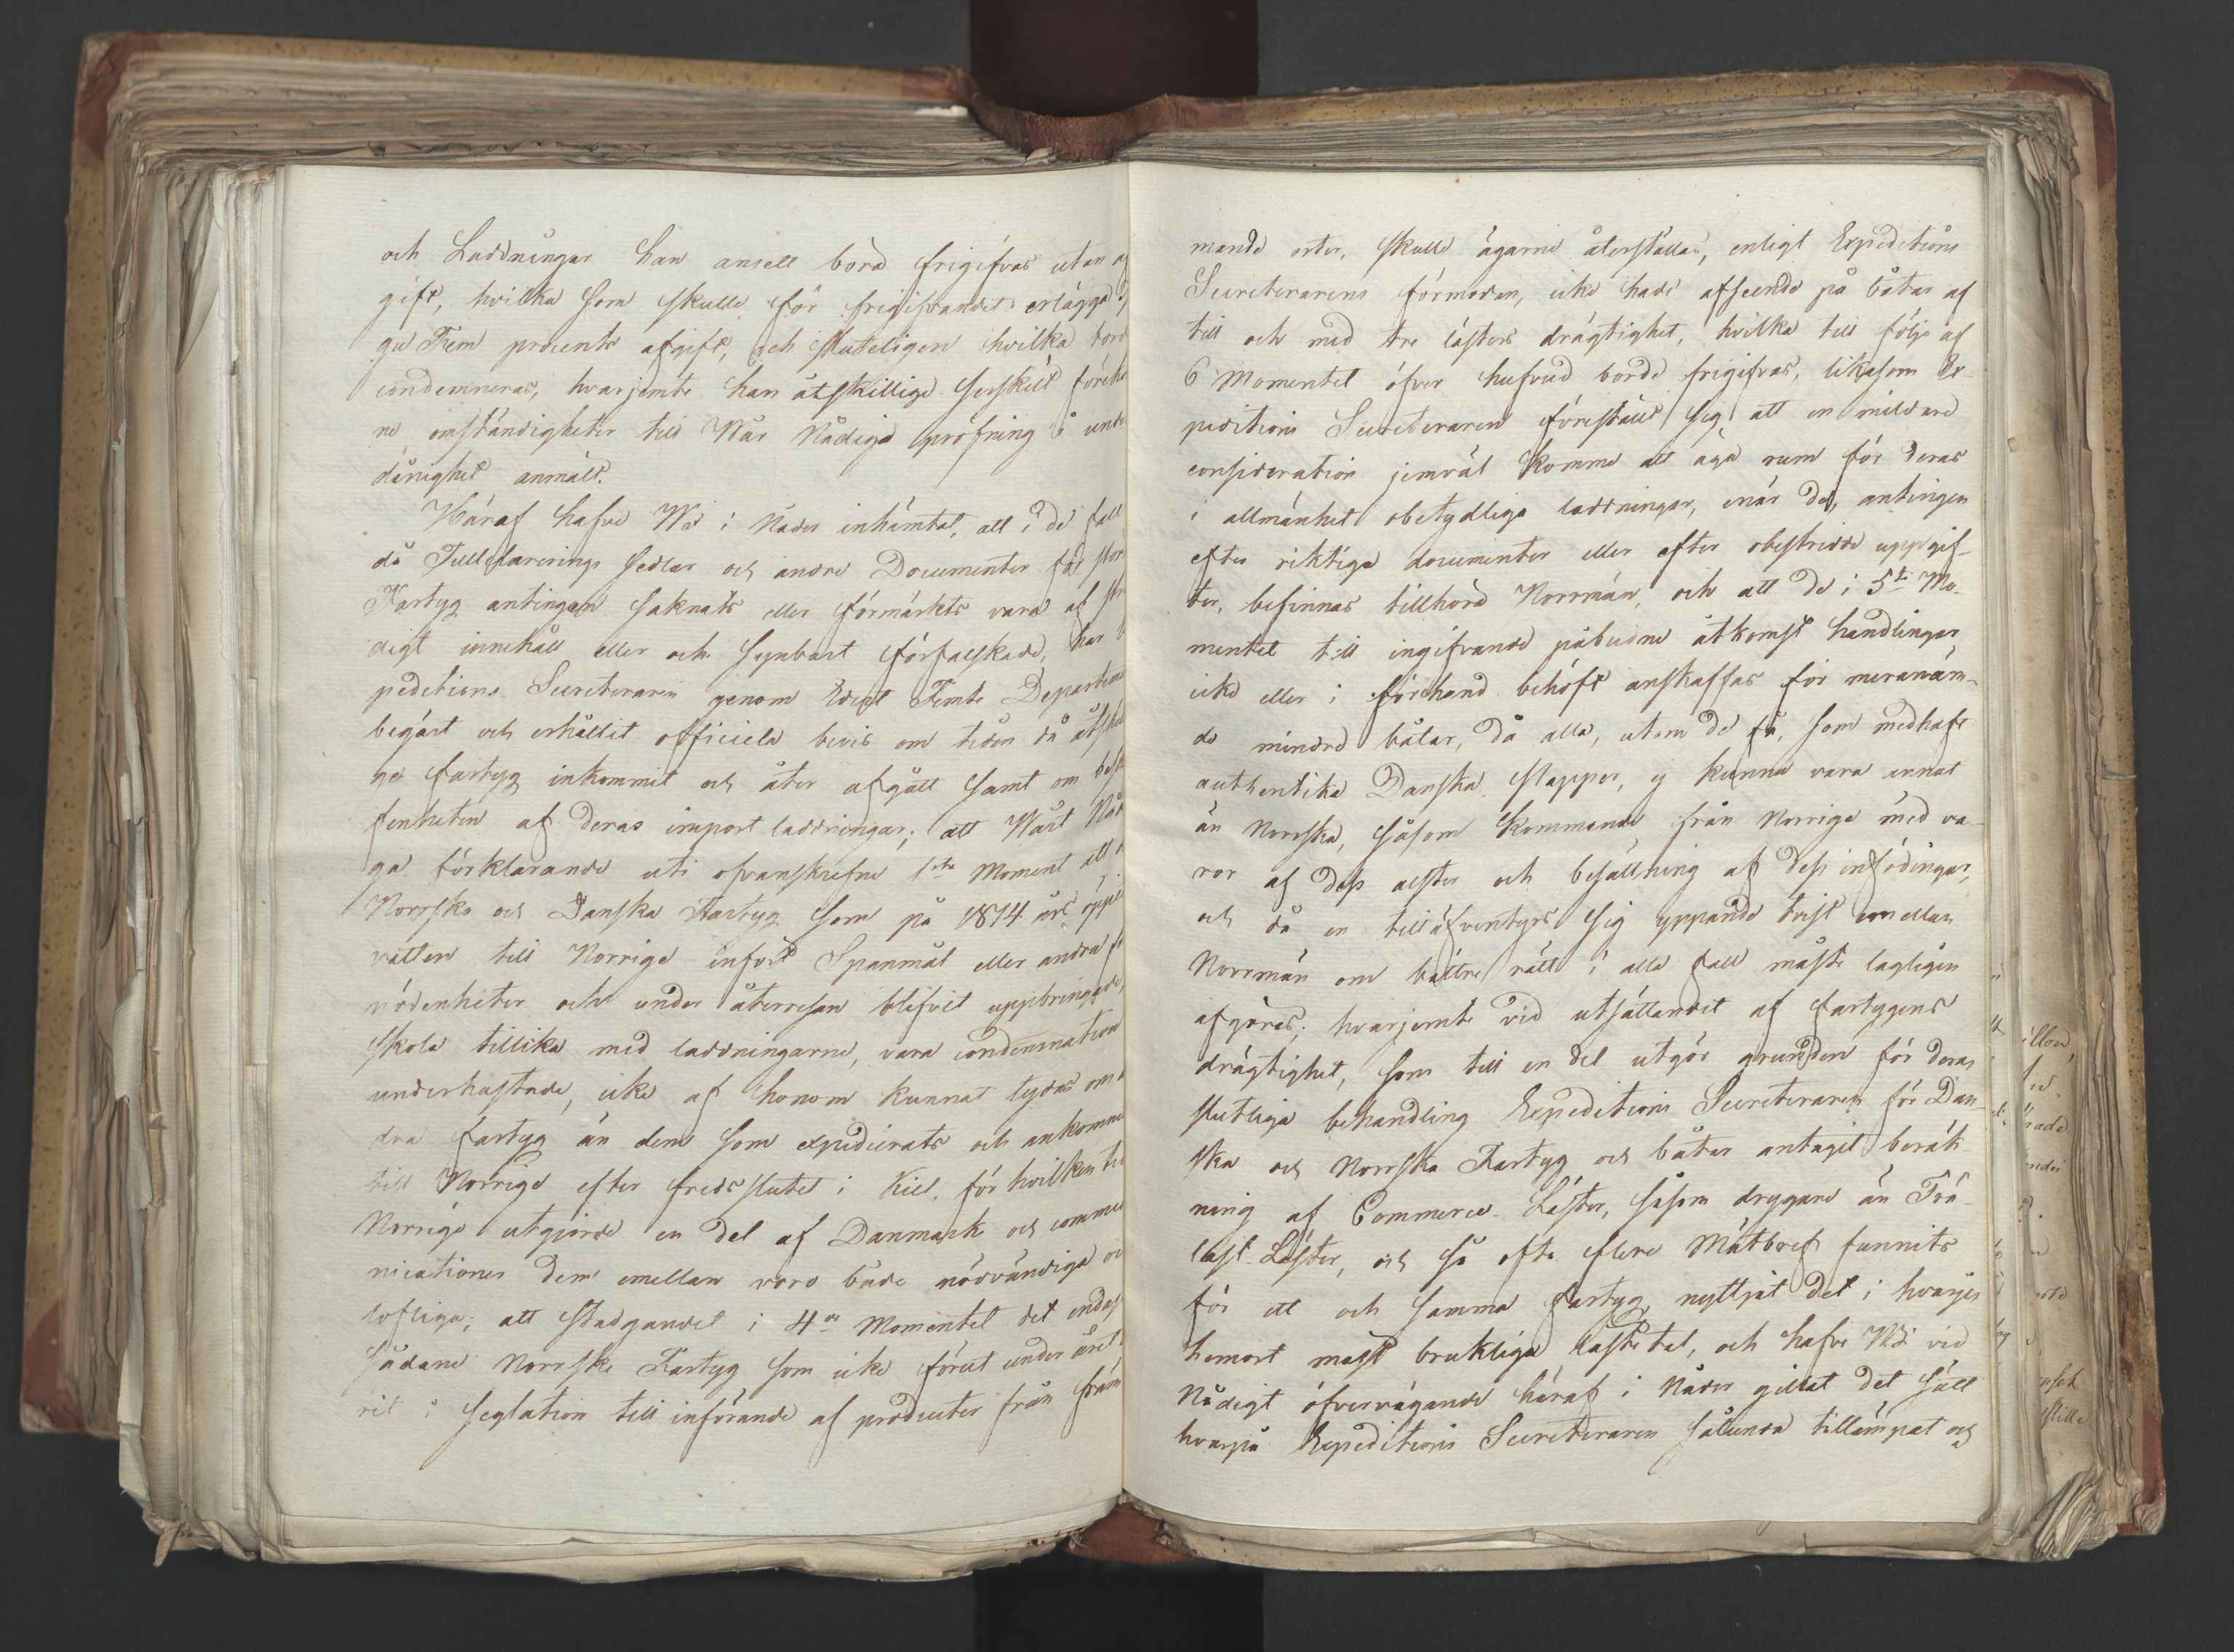 och Laddningar han ansett böra frigifvas utan af
gift, hvilka som skulle för frigifvandet erlägga
ga Fem procents afgift, och sluteligen hvilka bord
condemneras, hvarjemte han åtskillige serskilt föreko
ne omständigheter till Wår Nådiga pröfning i unde
dånighet anmält.
Häraf hafve Wi i Nåder inhämtat, att i de fall
då Tullclarerings sedlar och andre Documenter för
Fartyg antingen saknats eller förmärkts vara af
digt innehåll eller och synbart förfalskade, har
peditions Secreteraren genom Edert Femte Departem
begärt och erhållit officiela bevis om tiden då åtskil
ge fartyg inkommit och åter afgått samt om beska
fenheten af deras import laddningar; att Wårt Nåd
ga förklarande uti ofvanskrefne 1sta Moment att
Norrska och Danska Fartyg som på 1814 års öppit
vatten till Norrige infört Spanmål eller andra
nödenheter och under återresan blifvit uppbringade,
skola tillika med laddningarne, vara condemnation
underkastade, icke af honom kunnat tydas om
dra fartyg än dem som expedierats och ankommit
till Norrige efter fredsslutet i Kiel, för hvilken tid
Norrige utgjorde en del af Danmark och commu
nicationer dem emellan voro både nödvändiga och
lofliga; att stadgandet i 4de Momentet det endast
sådane Norrske Fartyg som icke förut under året
rit i seglation till införande af producter från främ
mande orter, skulle ägarne återställas, enligt Expeditions
Secreterarens förmodan, icke hade afseende på båtar af
till och med tre lästers drägtighet, hvilka till följe af
6 Momentet öfver hufvud borde frigifvas, likasom Ex-
peditions Secreteraren föreställt sig att en mildare
consideration jemväl komme att äga rum för deras
i allmänhet obetydliga laddningar, enär de, antingen
efter riktiga documenter eller efter obestridde uppgif-
ter, befinnas tillhöra Norrmän, och att de i 5te Mo-
mentet till ingifvande påbudne åtkomst handlingar
icke eller i förehand behöft anskaffas för meranäm-
de mindre båtar, då alla, utom de få, som medhaft
authentika Danska slapper, ej kunna vara annat
än Norrska, såsom kommande från Norrige med va-
ror af dess alster och besättning af dess infödingar,
och då en till äfventyrs sig yppande tvist emellan
Norrmän om bättre rätt i alla fall måste lagligen
afgöras; hvarjemte vid utsättandet af fartygens
drägtighet, som till en del utgör grunden för deras
slutliga behandling Expeditions Secreteraren för Dan-
ska och Norrska Fartyg och båtar antagit beräk-
ning af Commerce-Läster, såsom drygare än Trä-
last-Läster, och så ofta flere Mätbref funnits
för ett och samma fartyg nyttjat det i hvarje
hemort mäst brukliga lästetal, och hafve Wi vid
Nådigt öfvervägande häraf i Nåder gillat det sätt
hvarpå Expeditions Secreteraren sålunda tillämpat och